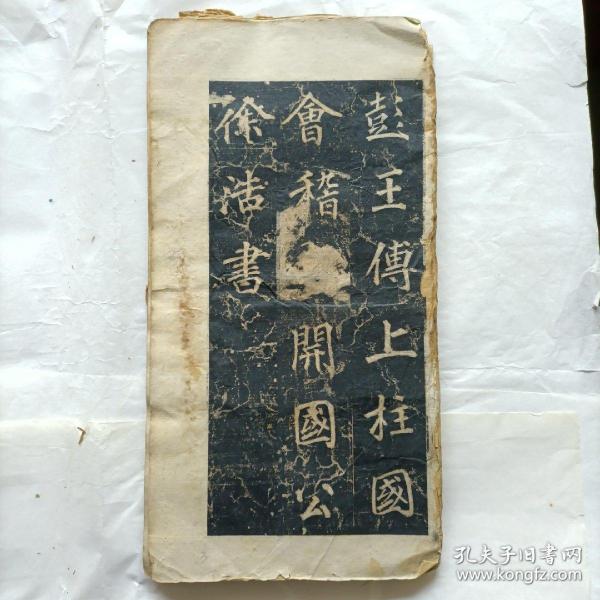 彭王傅上柱國
會稽開國公
徐浩書
孔夫子旧书网
www.kongfz.com